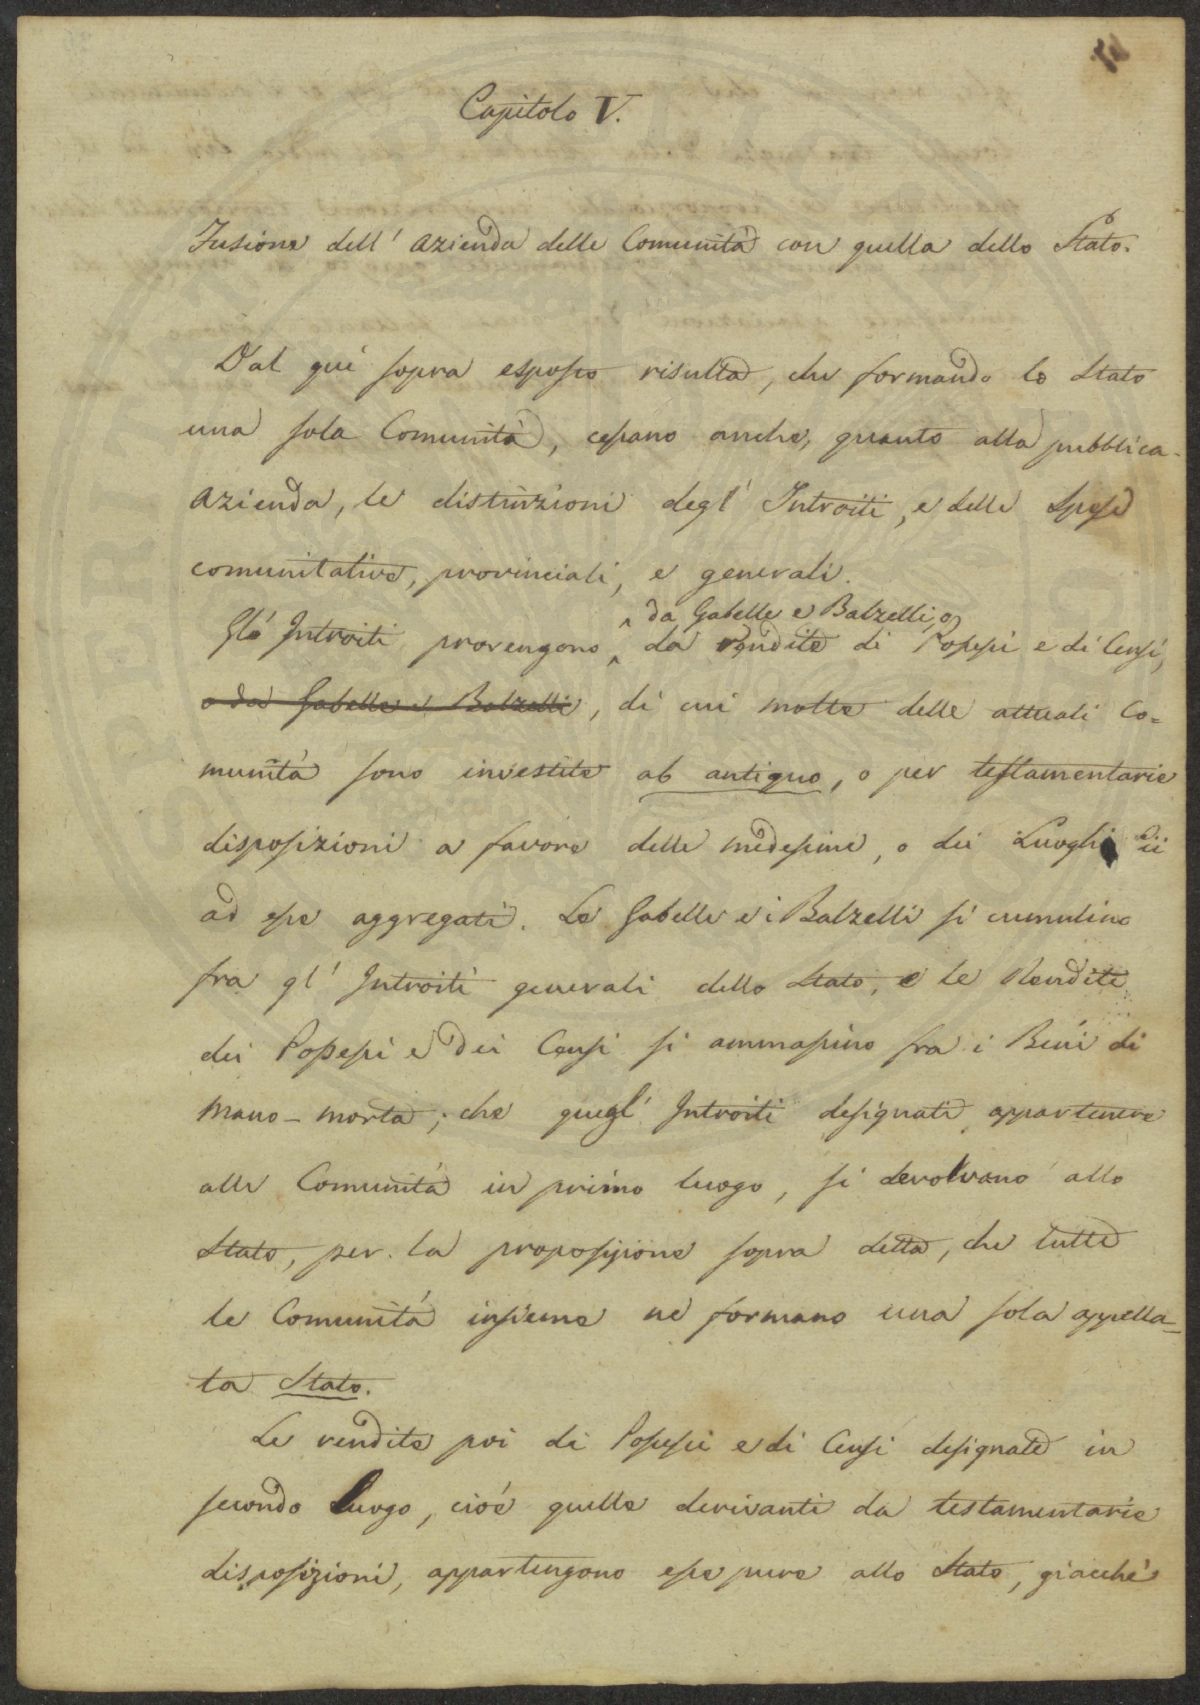 Capitolo V.
Fusione dell' Azienda delle Comunità con quella dello Stato.
Dal quì sopra esposto risulta, che formando lo Stato
una sola Comunità, cessano anche, quanto alla pubblica
Azienda, le distinzioni degl' Introiti, e delle Spese
comunitative, provinciali, e generali.
da Gabelle e Balzelli, o
Gl' Introiti provengono da rendite di Possessi e di Censi,
o da Gabelle e Balzelli, di cui molte delle attuali Co=
munità sono investite ab antiquo, o per testamentarie
disposizioni a favore delle medesime, o dei Luoghi Pii
ad esse aggregati. Le Gabelle e i Balzelli si cumulino
fra gl' Introiti generali dello Stato, e le Rendite
dei Possessi e dei Censi si ammassino fra i Beni di
Mano-morta; che quegl' Introiti designati appartenere
alle Comunità in primo luogo, si devolvano allo
Stato, per la proposizione sopra detta, che tutte
le Comunità insieme ne formano una sola appella=
ta Stato.
Le rendite poi di Possessi e di Censi designate in
secondo luogo, cioè quelle derivanti da testamentarie
disposizioni, appartengono esse pure allo Stato, giacchè